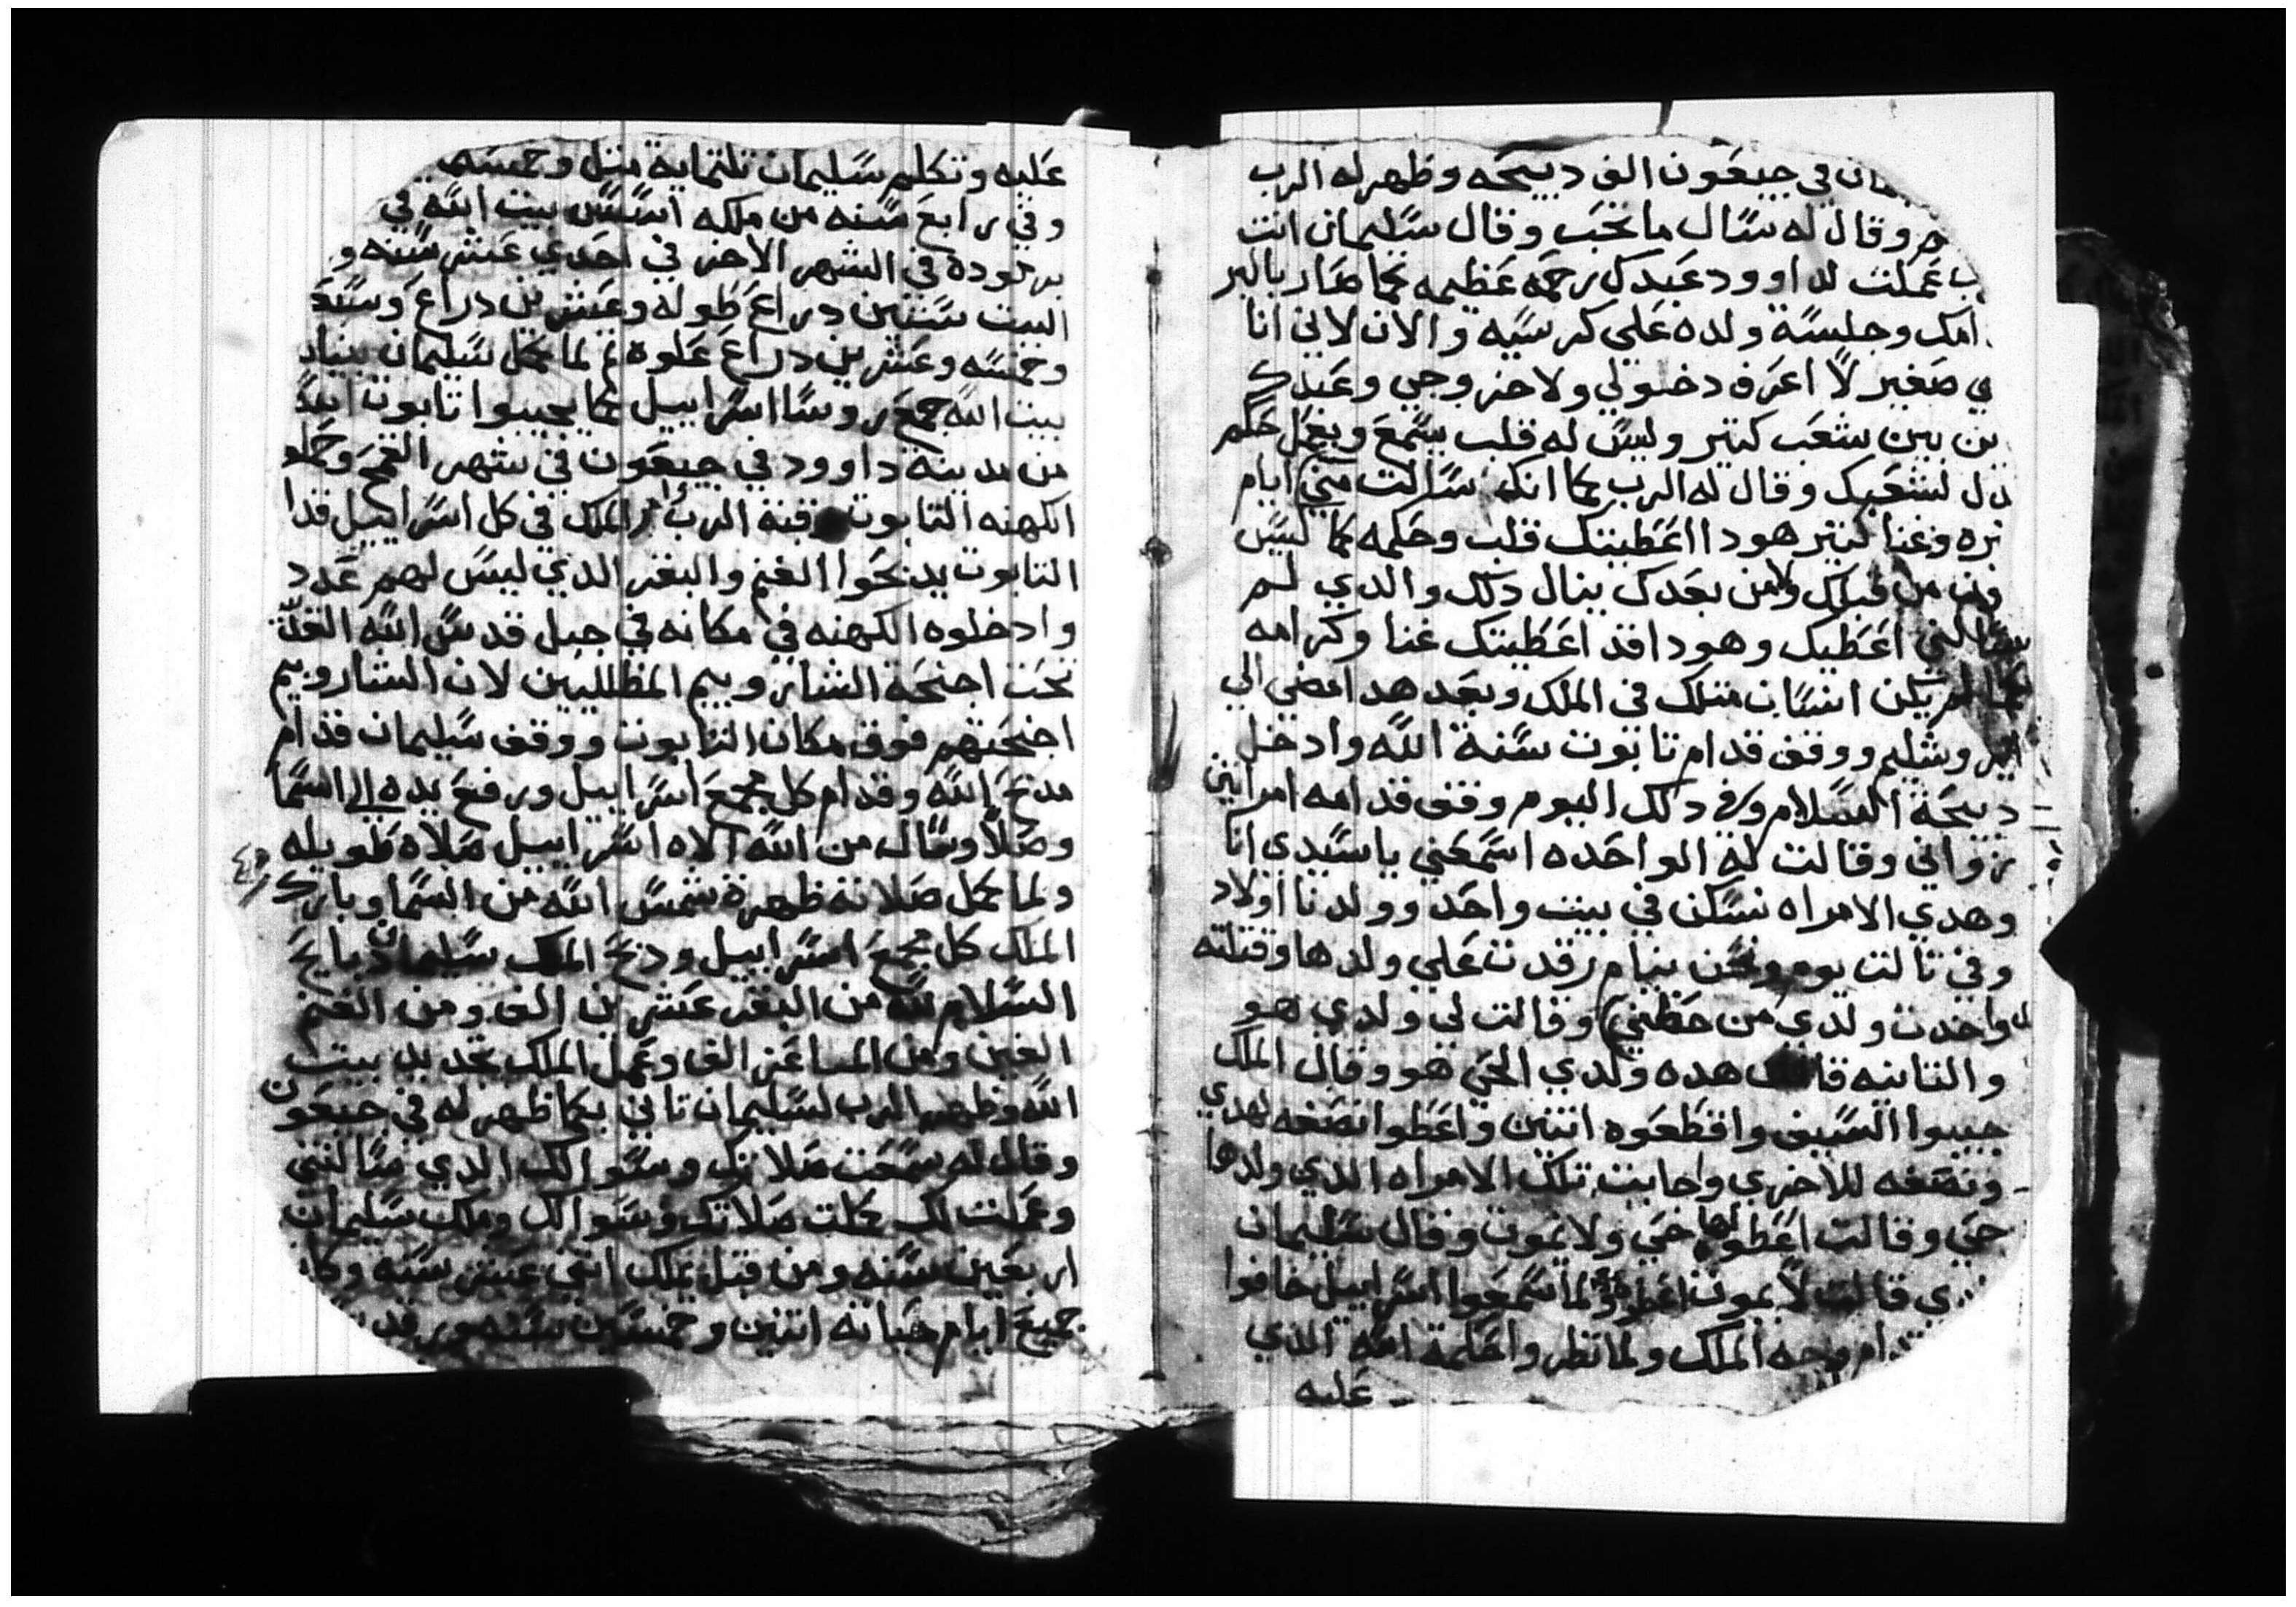 في جبعون الف دبيحه وظهر له الرب
وقال له سال ما تحب وقال سليمان انت
عملت لداوود عبدك رحمه عظيمه كما صار بالبر
امك وجلسة ولده علي كرسيه والان لاني انا
صغير لا اعرف دخولي ولا خروجي وعبدك
بين شعب كتير وليس له قلب يسمع ويعمل حكم
لشعبك وقال له الرب كما انك سالت مني ايام
وغنا كتير هودا اعطيتك قلب وحكمه كما ليس
من قبلك ولا من بعدك ينال دلك والدي لم
اعطيك وهودا قد اعطيتك غنا وكرامه
كما لم يكن انسان متلك في الملك وبعد هدا مضي الي
ووقف قدام تابوت سنة الله وادخل
دبيحة السلام وفي دلك اليوم وقف قدامه امراتين
زواني وقالت له الواحده اسمعني ياسيدي انا
وهدي الامراه نسكن في بيت واحد وولدنا اولاد
وفي تالت يوم ونحن نيام رقدت علي ولدها وقتلته
واخدت ولدي من حظني وقالت لي ولدي هو
والتانيه قالت هده ولدي الحي هو وقال الملك
جيبوا السيف واقطعوه اتنين واعطوا نصفه لهدي
ونصفه للاخري واجابت تلك الامراه الدي ولدها
حي وقالت اعطوه لها حي ولا يموت وقال سليمان
قالت لا يموت ولما سمعوا اسراييل خافوا
وجه الملك ولما نظروا حكمة الله الدي
عليه
عليه وتكلم سليمان تلتماية متل وخمسه
وفي رابع سنه من ملكه اسس بيت الله في
برمودة في الشهر الاخر في احدي عشر سنه و
البيت ستين دراع طوله وعشرين دراع وسعه
وخمسه وعشرين دراع علوه ولما كمل سليمان بنيان
بيت الله جمع روسا اسراييل كما يجيبوا تابوت
من مدينه داوود في جبعون في شهر القمح وحملو
الكهنه التابوت وقبة الرب والملك في كل اسراييل قدام
التابوت يدبحوا الغنم والبقر الدي ليس لهم عدد
وادخلوه الكهنه في مكانه في جبل قدس الله
تحت اجنحة الشاروبيم المظلليين لان الشاروبيم
اجنحتهم فوق مكان التابوت ووقف سليمان قدام
مدبح الله وقدام كل مجمع اسراييل ورفع يده الي السما
وصلا وسال من الله الاه اسراييل صلاه طويله
ولما كمل صلاته ظهرة شمس الله من السما وبارك
الملك كل مجمع اسراييل ودبح الملك سليمان دبايح
السلام لله من البقر عشرين الف ومن الغنم
الفين ومن الماعز الف وعمل الملك تجديد بيت
الله وظهر الرب لسليمان تاني كما ظهر له في جبعون
وقال له سمعت صلاتك وسوالك الدي سالتني
وعملت لك كلت صلاتك وسوالك وملك سليمان
اربعين سنه ومن قبل يملك اتني عشر سنه وكان
جميع ايام حياته اتنين وخمسين سنه ورقد